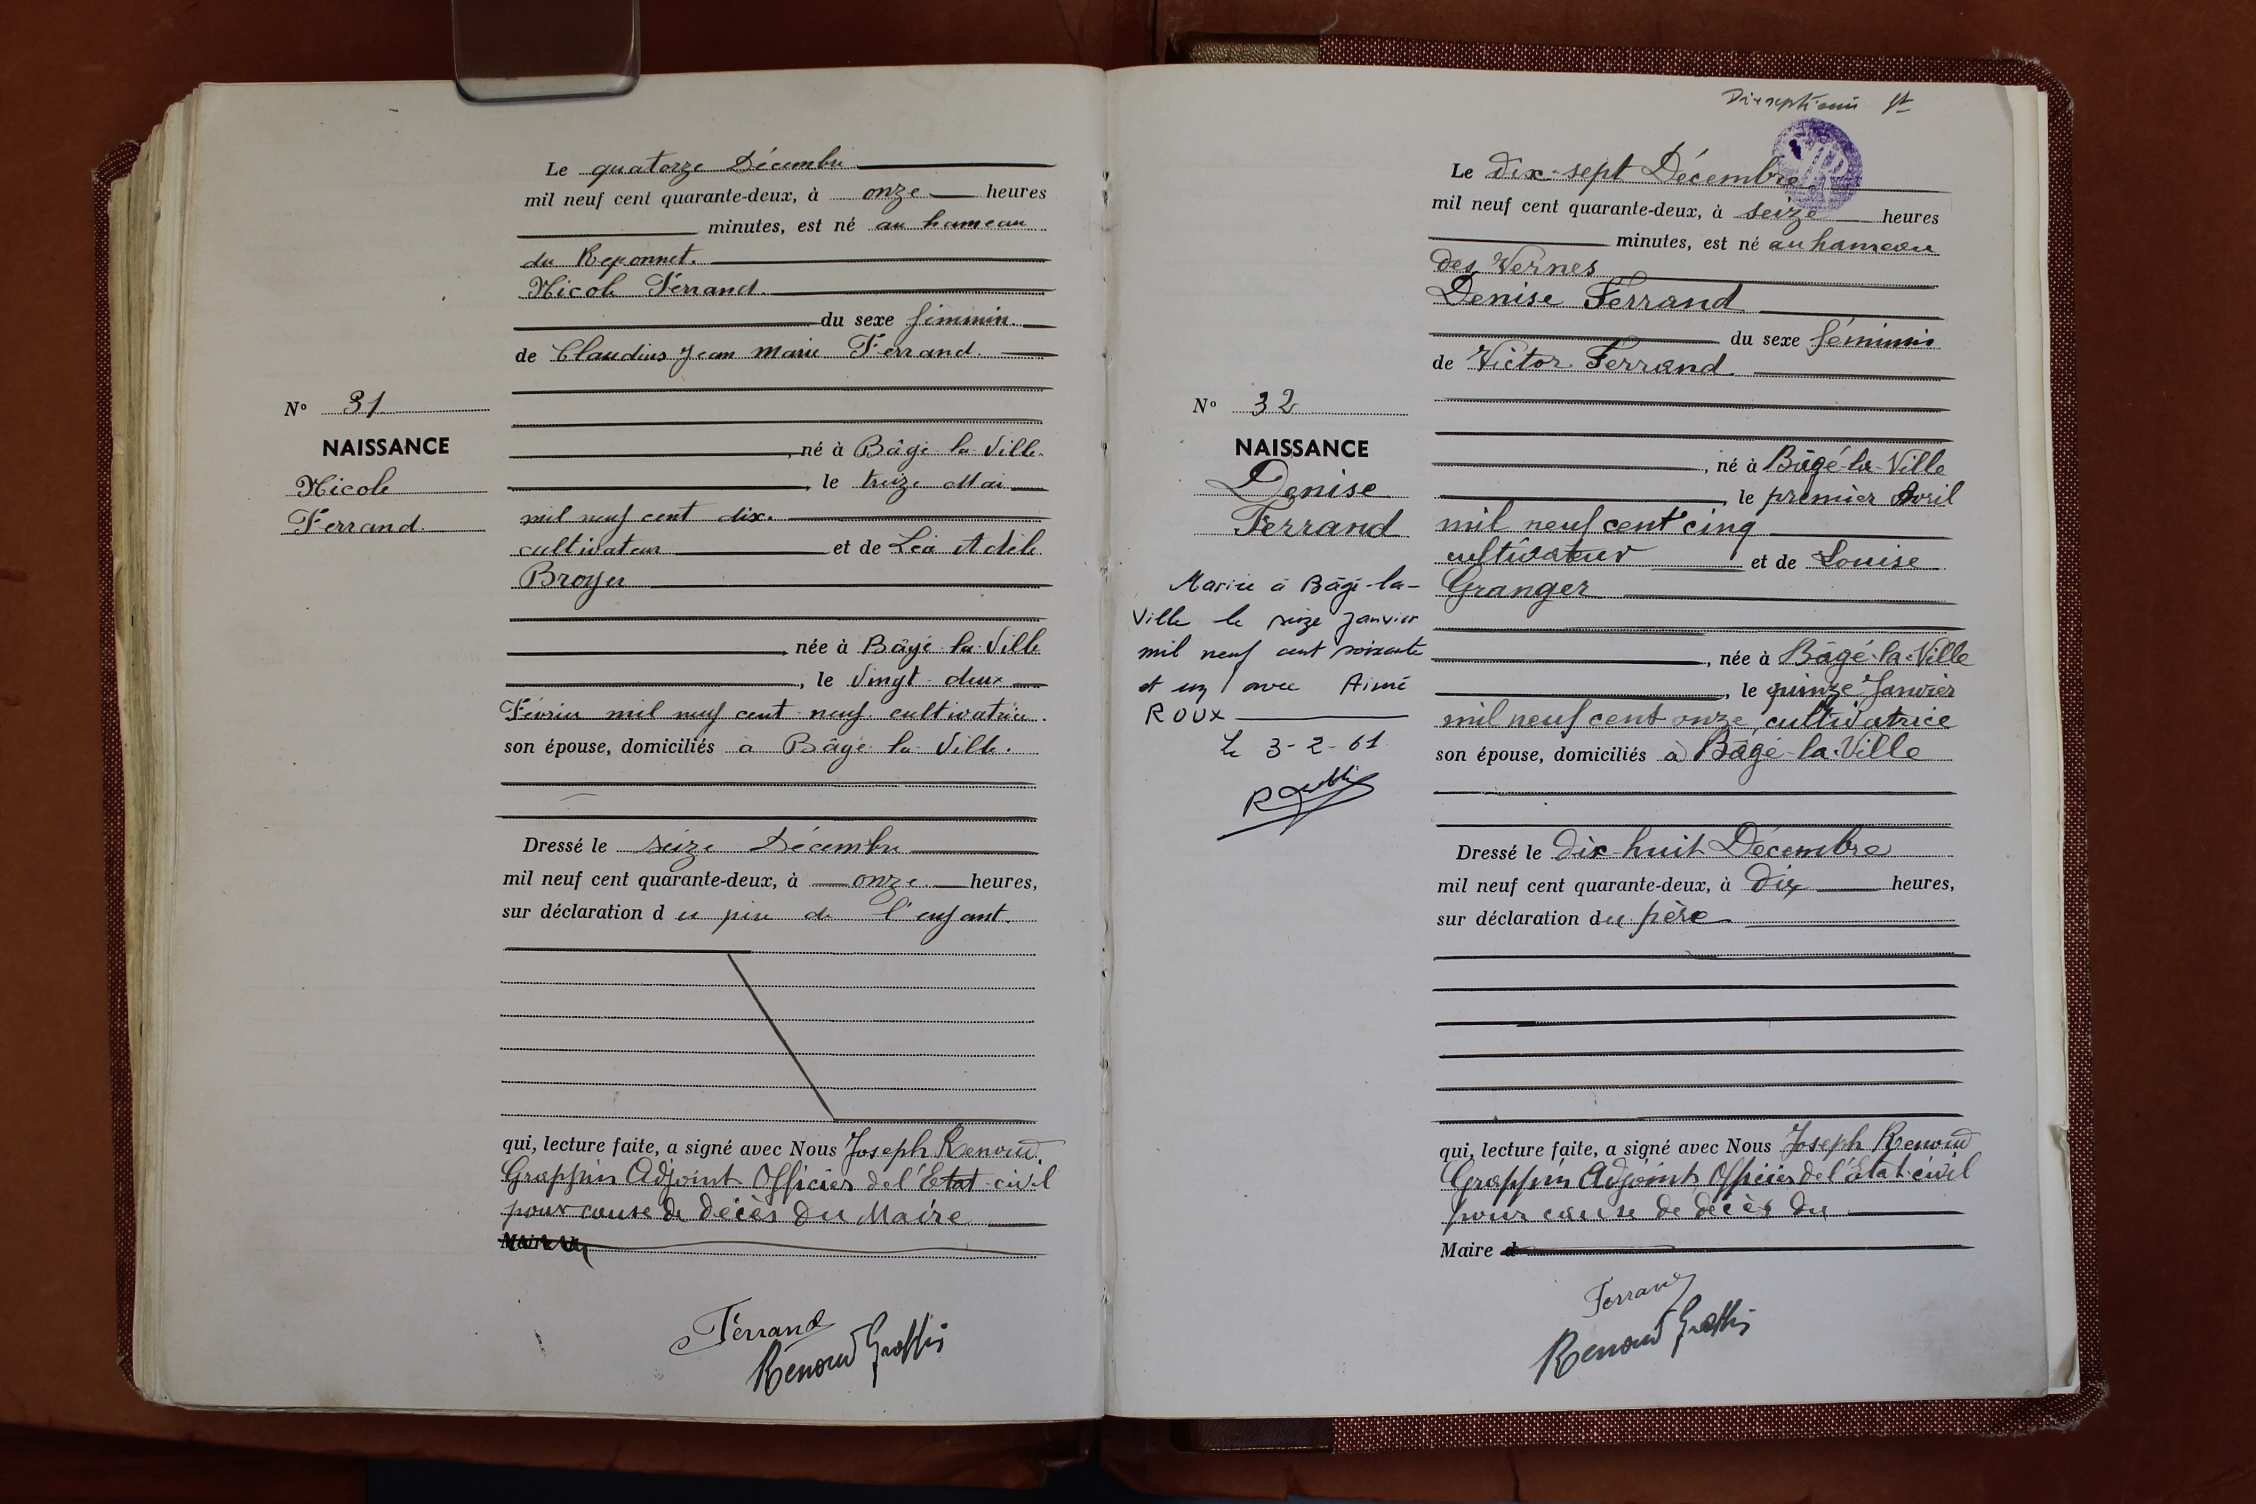 Le quatorze Décembre
mil neuf cent quarante-deux, à onze heures
minutes, est né au hameau
du Reponnet.
Nicole Ferrand.
du sexe féminin.
de Claudius Jean Marie Ferrand.
N° 31
NAISSANCE
Nicole
Ferrand.
, né à Bâgé la Ville.
, le treize Mai
mil neuf cent dix.
cultivateur et de Léa Adèle
Broyer
née à Bâgé la Ville
, le vingt-deux
Février mil neuf cent neuf. cultivatrice.
son épouse, domiciliés à Bâgé la Ville.
Dressé le seize Décembre
mil neuf cent quarante-deux, à onze heures,
sur déclaration du père de l'enfant.
qui, lecture faite, a signé avec Nous Joseph Renoud
Grappin Adjoint Officier de l'Etat-civil
pour cause de décès du Maire
Ferrand
Renoud Grappin
Dixseptième ft
Le dix-sept Décembre
mil neuf cent quarante-deux, à seize heures
minutes, est né au hameau
des Vernes
Denise Ferrand
du sexe féminin
de Victor Ferrand
N° 32
NAISSANCE
Denise
Ferrand
Mariée à Bâgé-la-
Ville le seize janvier
mil neuf cent soixante
et un avec Aimé
ROUX
Le 3-2-61
, né à Bâgé-la-Ville
, le premier Avril
mil neuf cent cinq
cultivateur et de Louise
Granger
, née à Bâgé-la-Ville
, le quinze Janvier
mil neuf cent onze, cultivatrice
son épouse, domiciliés à Bâgé-la-Ville
Dressé le dix-huit Décembre
mil neuf cent quarante-deux, à dix heures,
sur déclaration du père
qui, lecture faite, a signé avec Nous Joseph Renoud
Grappin Adjoint Officier de l'Etat-civil
pour cause de décès du
Maire
Ferrand
Renoud Grappin